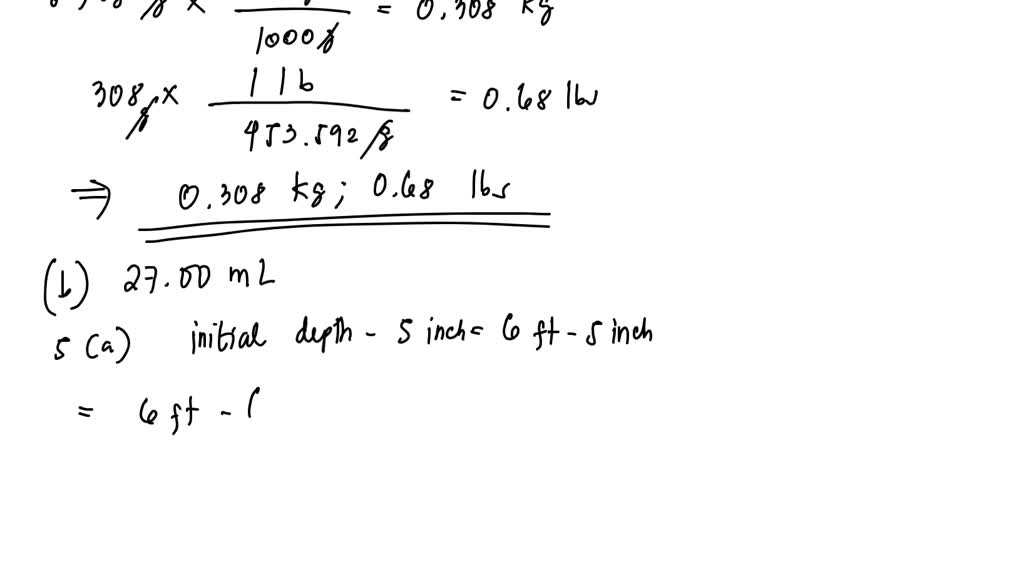 g × = 0.308 kg
1000 g
308 g × 1 lb = 0.68 lbs
453.592 g
⇒ 0.308 kg; 0.68 lbs
(b) 27.00 mL
5 (a) initial depth - 5 inch = 6 ft - 5 inch
= 6 ft - (